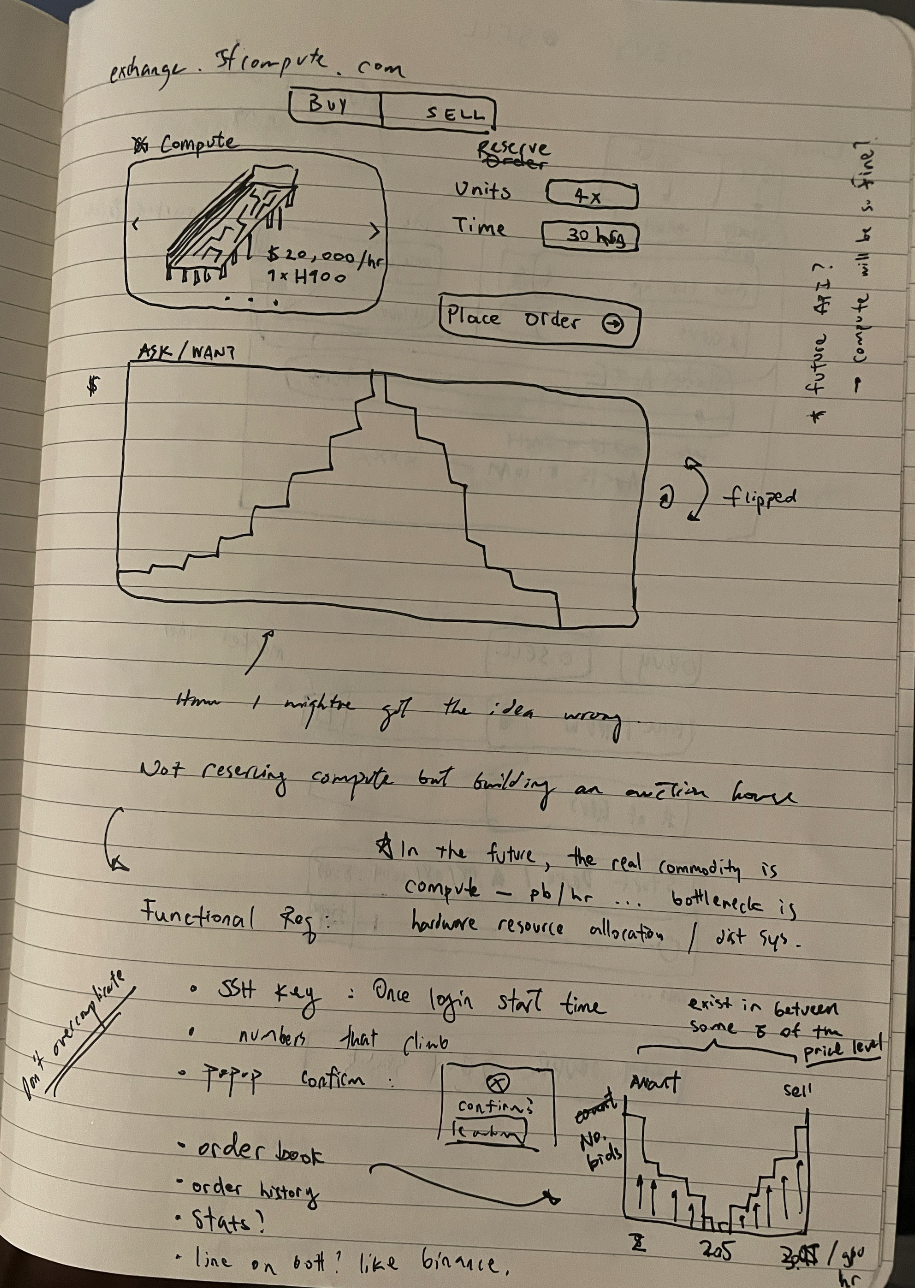 exchange. sfcompute. com
BUY SELL
Compute
Reserve
Order
Units 4x
Time 30 hrs
$20,000/hr
1x H100
Place order
ASK / WANT
$
flipped
* future API?
→ compute will be so fine!
Hmm I mightve got the idea wrong.
Not reserving compute but building an auction house
In the future, the real commodity is
compute — pb/hr ... bottleneck is
hardware resource allocation / dist sys.
Functional Req:
Don't overcomplicate
• SSH Key : Once login start time
• numbers that climb
• popup confirm :
confirm?
• order book
• order history
• Stats?
• line on bott? like binance.
exist in between
some % of the
price level
want sell
count
No.
bids
2 2.05 / gpu
hr